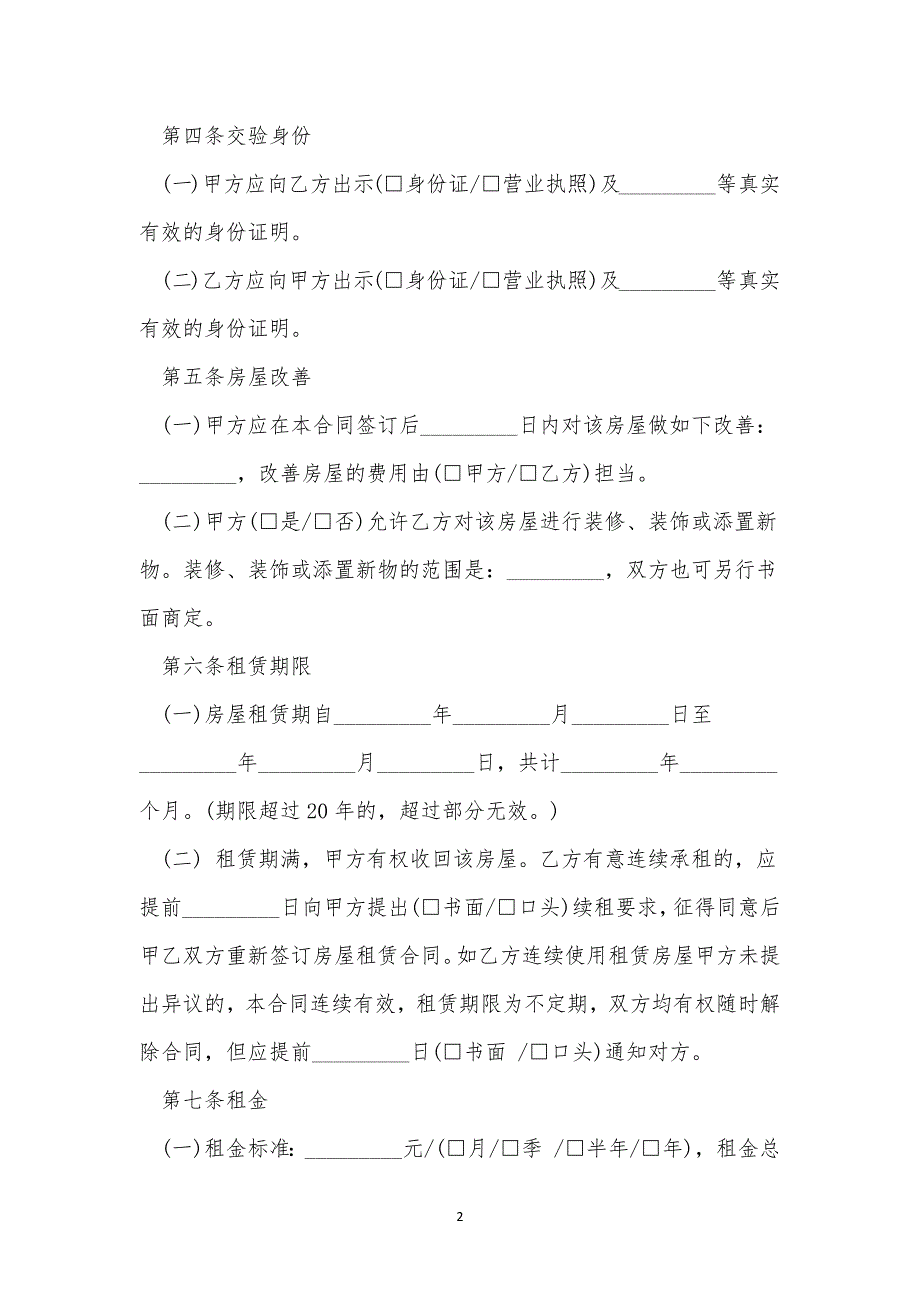 第四条交验身份
(一)甲方应向乙方出示(□身份证/□营业执照)及_________等真实
有效的身份证明。
(二)乙方应向甲方出示(□身份证/□营业执照)及_________等真实
有效的身份证明。
第五条房屋改善
(一)甲方应在本合同签订后_________日内对该房屋做如下改善：
_________，改善房屋的费用由(□甲方/□乙方)担当。
(二)甲方(□是/□否)允许乙方对该房屋进行装修、装饰或添置新
物。装修、装饰或添置新物的范围是：_________，双方也可另行书
面商定。
第六条租赁期限
(一)房屋租赁期自_________年_________月_________日至
_________年_________月_________日，共计_________年_________
个月。(期限超过20年的，超过部分无效。)
(二) 租赁期满，甲方有权收回该房屋。乙方有意连续承租的，应
提前_________日向甲方提出(□书面/□口头)续租要求，征得同意后
甲乙双方重新签订房屋租赁合同。如乙方连续使用租赁房屋甲方未提
出异议的，本合同连续有效，租赁期限为不定期，双方均有权随时解
除合同，但应提前_________日(□书面 /□口头)通知对方。
第七条租金
(一)租金标准：_________元/(□月/□季 /□半年/□年)，租金总
2